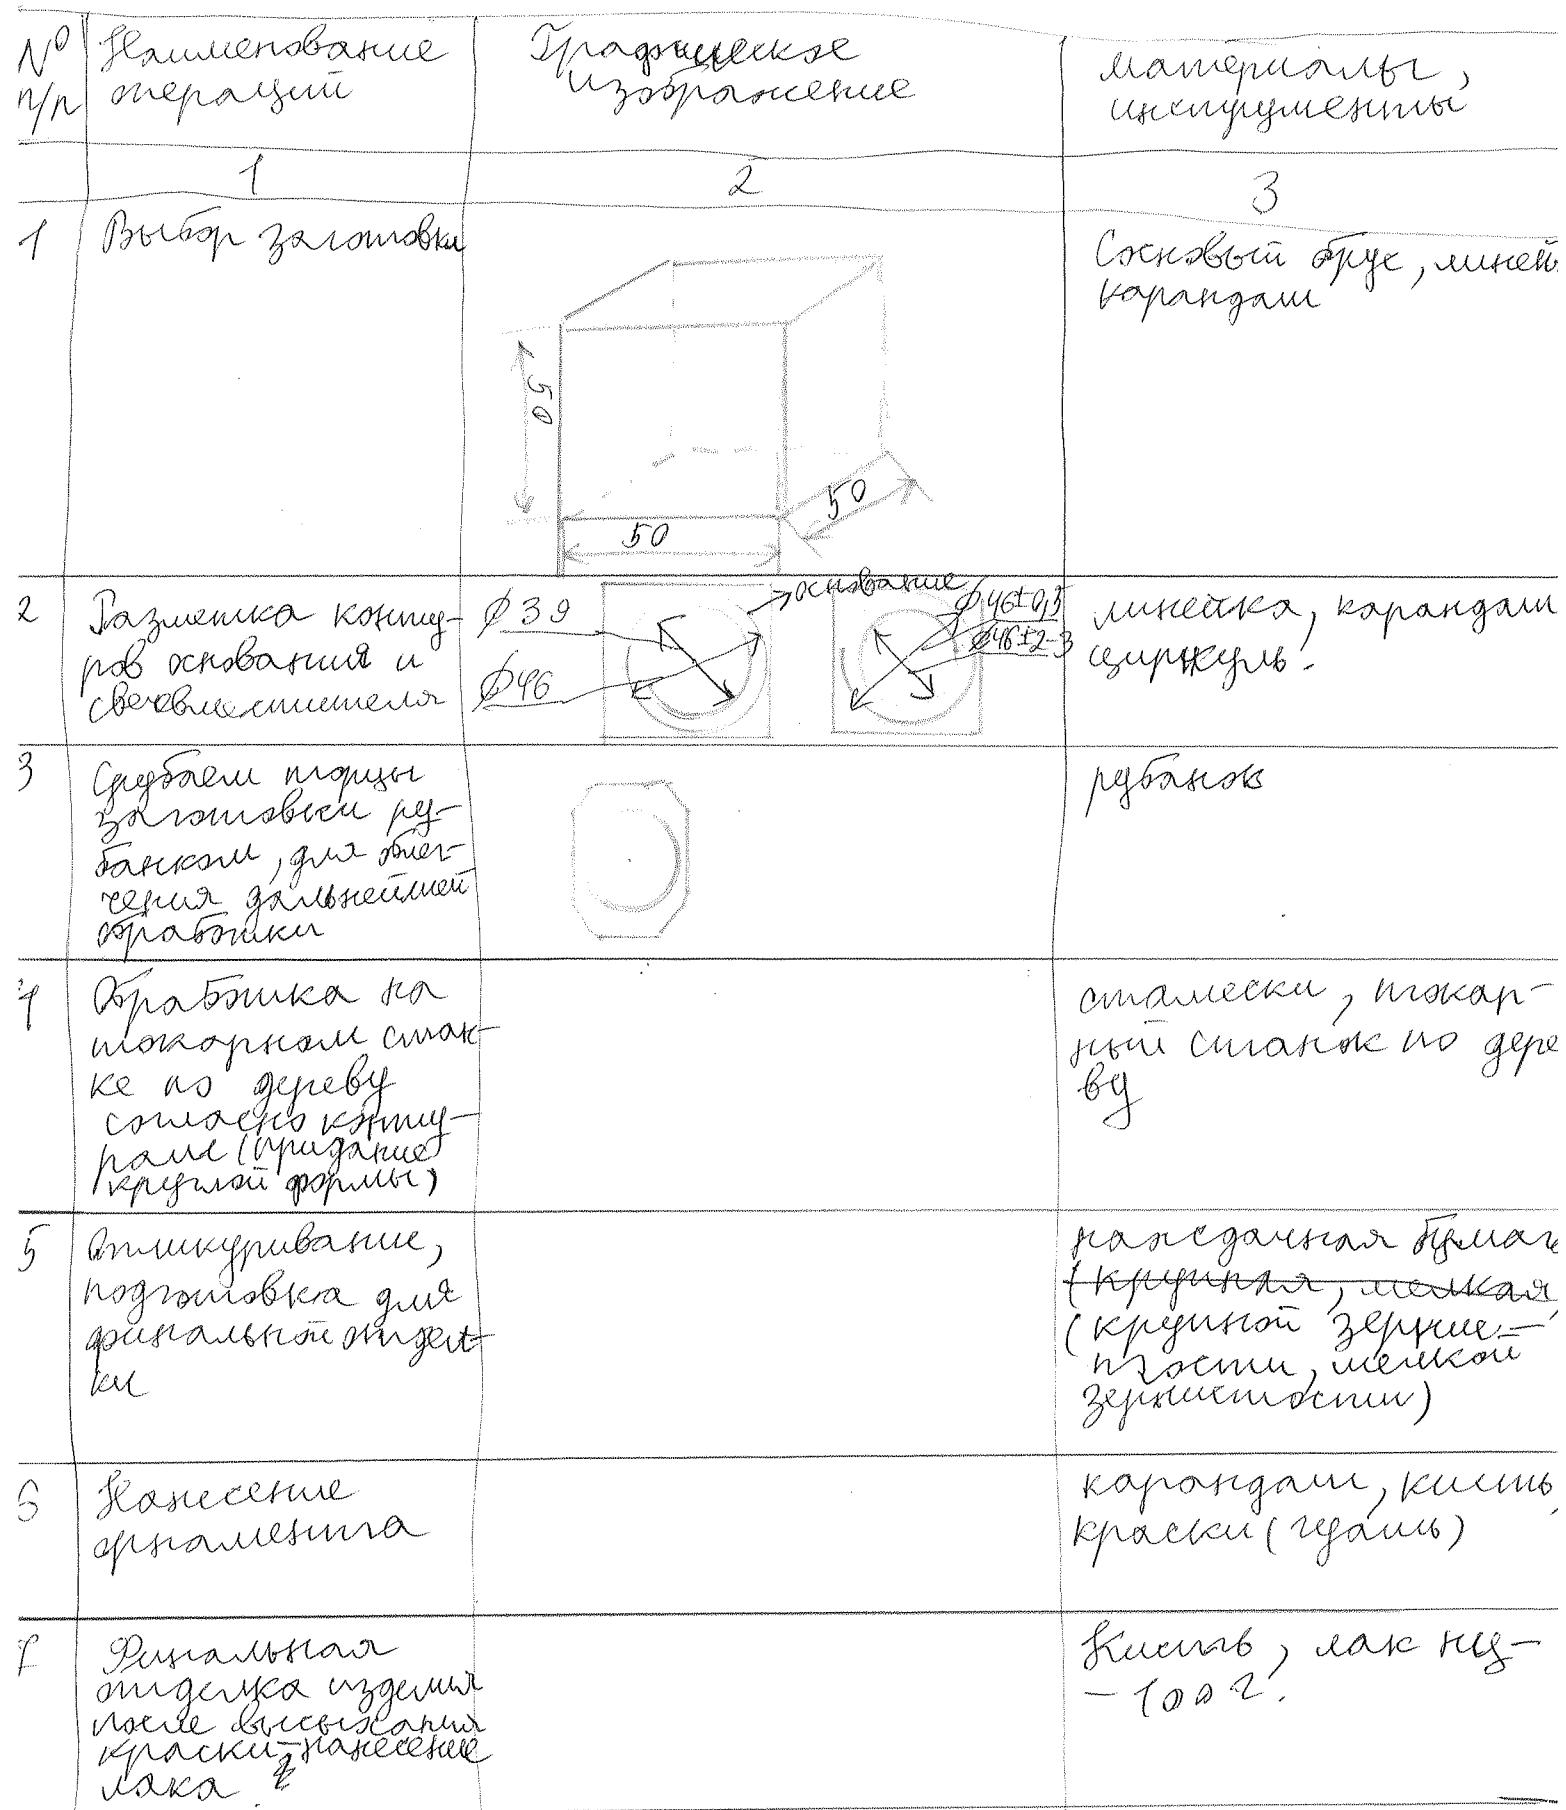 № п/п
Наименование
операций
Графическое
изображение
материалы,
инструменты
1
2
3
1
Выбор заготовки
50
50
50
Сосновый брус, линей
карандаш
2
Разметка конту-
ров основания и
свечевместителя
ø39
ø46
основание
ø46±0,5
ø46±2-3
линейка, карандаш
циркуль.
3
Срубаем торцы
заготовки ру-
банком, для облег-
чения дальнейшей
обработки
рубанок
4
Обработка на
токарном стан-
ке по дереву
согласно конту-
рам (придание
круглой формы)
стамески, токар-
ный станок по дере
ву
5
Ошкуривание,
подготовка для
финальной отдел-
ки
наждачная бумаг
(крупная, мелкая
(крупной зернис-
тости, мелкой
зернистости)
6
Нанесение
орнамента
карандаш, кисть,
краски (гуашь)
7
Финальная
отделка изделия
после высыхания
краски-нанесение
лака
Кисть, лак нц-
-100г.